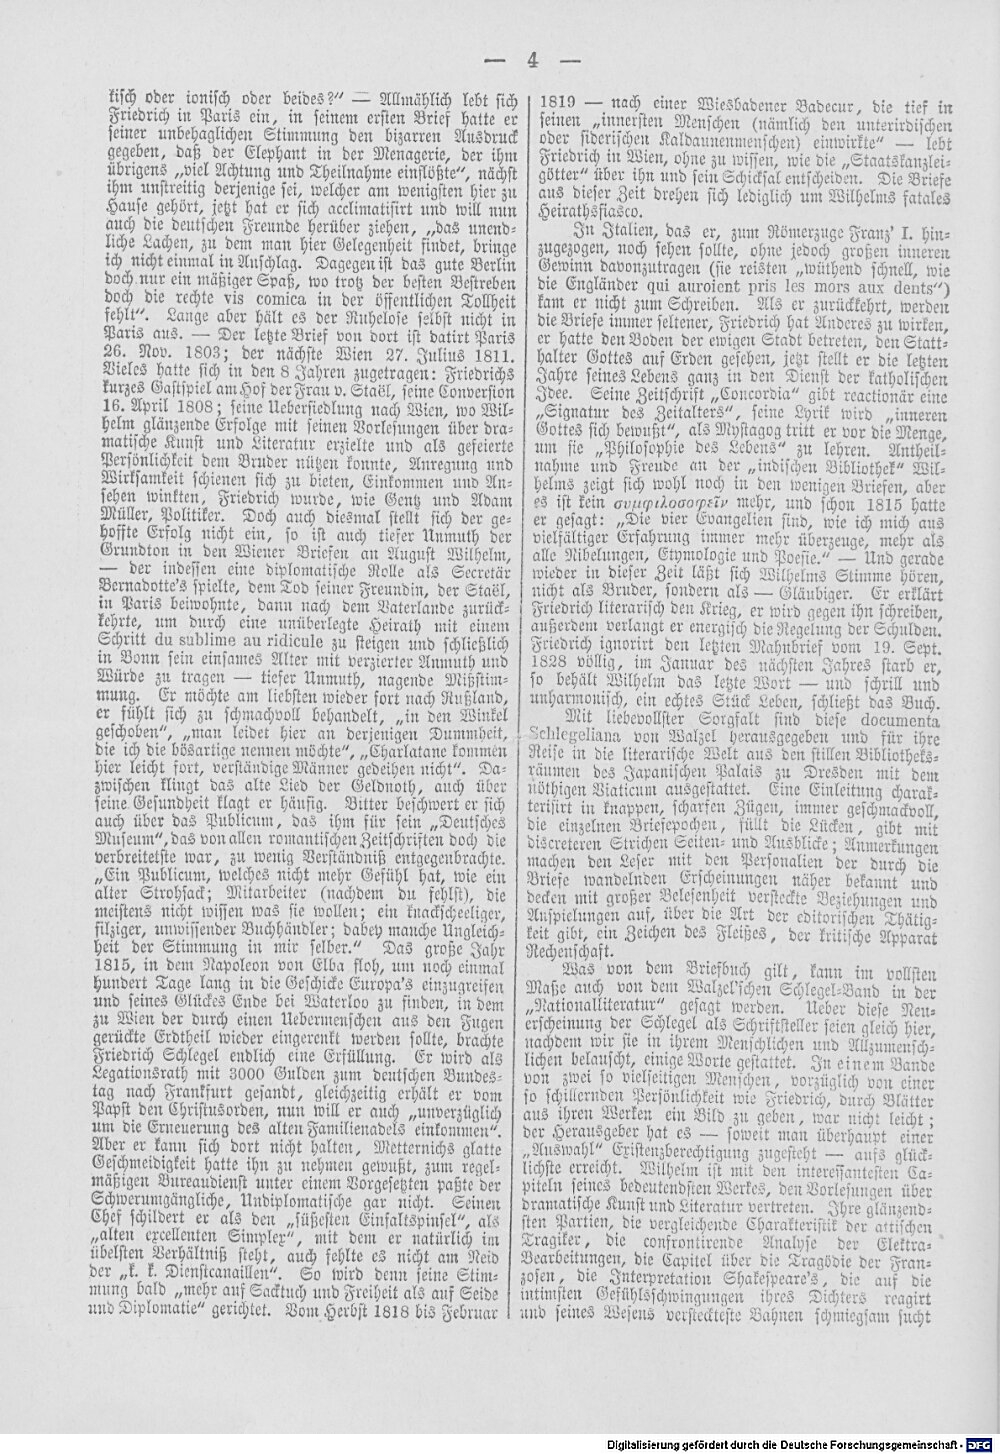 — 4 —
kisch oder ionisch oder beides?“ — Allmählich lebt sich
Friedrich in Paris ein, in seinem ersten Brief hatte er
seiner unbehaglichen Stimmung den bizarren Ausdruck
gegeben, daß der Elephant in der Menagerie, der ihm
übrigens „viel Achtung und Theilnahme einflößte“, nächst
ihm unstreitig derjenige sei, welcher am wenigsten hier zu
Hause gehört, jetzt hat er sich acclimatisirt und will nun
auch die deutschen Freunde herüber ziehen, „das unend-
liche Lachen, zu dem man hier Gelegenheit findet, bringe
ich nicht einmal in Anschlag. Dagegen ist das gute Berlin
doch nur ein mäßiger Spaß, wo trotz der besten Bestreben
doch die rechte vis comica in der öffentlichen Tollheit
fehlt“. Lange aber hält es der Ruhelose selbst nicht in
Paris aus. — Der letzte Brief von dort ist datirt Paris
26. Nov. 1803; der nächste Wien 27. Julius 1811.
Vieles hatte sich in den 8 Jahren zugetragen: Friedrichs
kurzes Gastspiel am Hof der Frau v. Staël, seine Conversion
16. April 1808; seine Uebersiedlung nach Wien, wo Wil-
helm glänzende Erfolge mit seinen Vorlesungen über dra-
matische Kunst und Literatur erzielte und als gefeierte
Persönlichkeit dem Bruder nützen konnte, Anregung und
Wirksamkeit schienen sich zu bieten, Einkommen und An-
sehen winkten, Friedrich wurde, wie Gentz und Adam
Müller, Politiker. Doch auch diesmal stellt sich der ge-
hoffte Erfolg nicht ein, so ist auch tiefer Unmuth der
Grundton in den Wiener Briefen an August Wilhelm,
— der indessen eine diplomatische Rolle als Secretär
Bernadotte's spielte, dem Tod seiner Freundin, der Staël,
in Paris beiwohnte, dann nach dem Vaterlande zurück-
kehrte, um durch eine unüberlegte Heirath mit einem
Schritt du sublime au ridicule zu steigen und schließlich
in Bonn sein einsames Alter mit verzierter Anmuth und
Würde zu tragen — tiefer Unmuth, nagende Mißstim-
mung. Er möchte am liebsten wieder fort nach Rußland,
er fühlt sich zu schmachvoll behandelt, „in den Winkel
geschoben“, „man leidet hier an derjenigen Dummheit,
die ich die bösartige nennen möchte“, „Charlatane kommen
hier leicht fort, verständige Männer gedeihen nicht“. Da-
zwischen klingt das alte Lied der Geldnoth, auch über
seine Gesundheit klagt er häufig. Bitter beschwert er sich
auch über das Publicum, das ihm für sein „Deutsches
Museum“, das von allen romantischen Zeitschriften doch die
verbreitetste war, zu wenig Verständniß entgegenbrachte.
„Ein Publicum, welches nicht mehr Gefühl hat, wie ein
alter Strohsack; Mitarbeiter (nachdem du fehlst), die
meistens nicht wissen was sie wollen; ein knackscheeliger,
filziger, unwissender Buchhändler; dabey manche Ungleich-
heit der Stimmung in mir selber.“ Das große Jahr
1815, in dem Napoleon von Elba floh, um noch einmal
hundert Tage lang in die Geschicke Europa's einzugreifen
und seines Glückes Ende bei Waterloo zu finden, in dem
zu Wien der durch einen Uebermenschen aus den Fugen
gerückte Erdtheil wieder eingerenkt werden sollte, brachte
Friedrich Schlegel endlich eine Erfüllung. Er wird als
Legationsrath mit 3000 Gulden zum deutschen Bundes-
tag nach Frankfurt gesandt, gleichzeitig erhält er vom
Papst den Christusorden, nun will er auch „unverzüglich
um die Erneuerung des alten Familienadels einkommen“.
Aber er kann sich dort nicht halten, Metternichs glatte
Geschmeidigkeit hatte ihn zu nehmen gewußt, zum regel-
mäßigen Bureaudienst unter einem Vorgesetzten paßte der
Schwerumgängliche, Undiplomatische gar nicht. Seinen
Chef schildert er als den „süßesten Einfaltspinsel“, als
„alten excellenten Simplex“, mit dem er natürlich im
übelsten Verhältniß steht, auch fehlte es nicht am Neid
der „k. k. Dienstcanaillen“. So wird denn seine Stim-
mung bald „mehr auf Sacktuch und Freiheit als auf Seide
und Diplomatie“ gerichtet. Vom Herbst 1818 bis Februar
1819 — nach einer Wiesbadener Badecur, die tief in
seinen „innersten Menschen (nämlich den unterirdischen
oder siderischen Kaldaunenmenschen) einwirkte“ — lebt
Friedrich in Wien, ohne zu wissen, wie die „Staatskanzlei-
götter“ über ihn und sein Schicksal entscheiden. Die Briefe
aus dieser Zeit drehen sich lediglich um Wilhelms fatales
Heirathsfiasco.
In Italien, das er, zum Römerzuge Franz' I. hin-
zugezogen, noch sehen sollte, ohne jedoch großen inneren
Gewinn davonzutragen (sie reisten „wüthend schnell, wie
die Engländer qui auroient pris les mors aux dents“)
kam er nicht zum Schreiben. Als er zurückkehrt, werden
die Briefe immer seltener, Friedrich hat Anderes zu wirken,
er hatte den Boden der ewigen Stadt betreten, den Statt-
halter Gottes auf Erden gesehen, jetzt stellt er die letzten
Jahre seines Lebens ganz in den Dienst der katholischen
Idee. Seine Zeitschrift „Concordia“ gibt reactionär eine
„Signatur des Zeitalters“, seine Lyrik wird „inneren
Gottes sich bewußt“, als Mystagog tritt er vor die Menge,
um sie „Philosophie des Lebens“ zu lehren. Antheil-
nahme und Freude an der „indischen Bibliothek“ Wil-
helms zeigt sich wohl noch in den wenigen Briefen, aber
es ist kein συμφιλοσοφεῖν mehr, und schon 1815 hatte
er gesagt: „Die vier Evangelien sind, wie ich mich aus
vielfältiger Erfahrung immer mehr überzeuge, mehr als
alle Nibelungen, Etymologie und Poesie.“ — Und gerade
wieder in dieser Zeit läßt sich Wilhelms Stimme hören,
nicht als Bruder, sondern als — Gläubiger. Er erklärt
Friedrich literarisch den Krieg, er wird gegen ihn schreiben,
außerdem verlangt er energisch die Regelung der Schulden.
Friedrich ignorirt den letzten Mahnbrief vom 19. Sept.
1828 völlig, im Januar des nächsten Jahres starb er,
so behält Wilhelm das letzte Wort — und schrill und
unharmonisch, ein echtes Stück Leben, schließt das Buch.
Mit liebevollster Sorgfalt sind diese documenta
Schlegeliana von Walzel herausgegeben und für ihre
Reise in die literarische Welt aus den stillen Bibliotheks-
räumen des Japanischen Palais zu Dresden mit dem
nöthigen Viaticum ausgestattet. Eine Einleitung charak-
terisirt in knappen, scharfen Zügen, immer geschmackvoll,
die einzelnen Briefepochen, füllt die Lücken, gibt mit
discreteren Strichen Seiten- und Ausblicke; Anmerkungen
machen den Leser mit den Personalien der durch die
Briefe wandelnden Erscheinungen näher bekannt und
decken mit großer Belesenheit versteckte Beziehungen und
Anspielungen auf, über die Art der editorischen Thätig-
keit gibt, ein Zeichen des Fleißes, der kritische Apparat
Rechenschaft.
Was von dem Briefbuch gilt, kann im vollsten
Maße auch von dem Walzel'schen Schlegel-Band in der
„Nationalliteratur“ gesagt werden. Ueber diese Neu-
erscheinung der Schlegel als Schriftsteller seien gleich hier,
nachdem wir sie in ihrem Menschlichen und Allzumensch-
lichen belauscht, einige Worte gestattet. In einem Bande
von zwei so vielseitigen Menschen, vorzüglich von einer
so schillernden Persönlichkeit wie Friedrich, durch Blätter
aus ihren Werken ein Bild zu geben, war nicht leicht;
der Herausgeber hat es — soweit man überhaupt einer
„Auswahl“ Existenzberechtigung zugesteht — aufs glück-
lichste erreicht. Wilhelm ist mit den interessantesten Ca-
piteln seines bedeutendsten Werkes, den Vorlesungen über
dramatische Kunst und Literatur vertreten. Ihre glänzend-
sten Partien, die vergleichende Charakteristik der attischen
Tragiker, die confrontirende Analyse der Elektra-
Bearbeitungen, die Capitel über die Tragödie der Fran-
zosen, die Interpretation Shakespeare's, die auf die
intimsten Gefühlsschwingungen ihres Dichters reagirt
und seines Wesens versteckteste Bahnen schmiegsam sucht
Digitalisierung gefördert durch die Deutsche Forschungsgemeinschaft - DFG